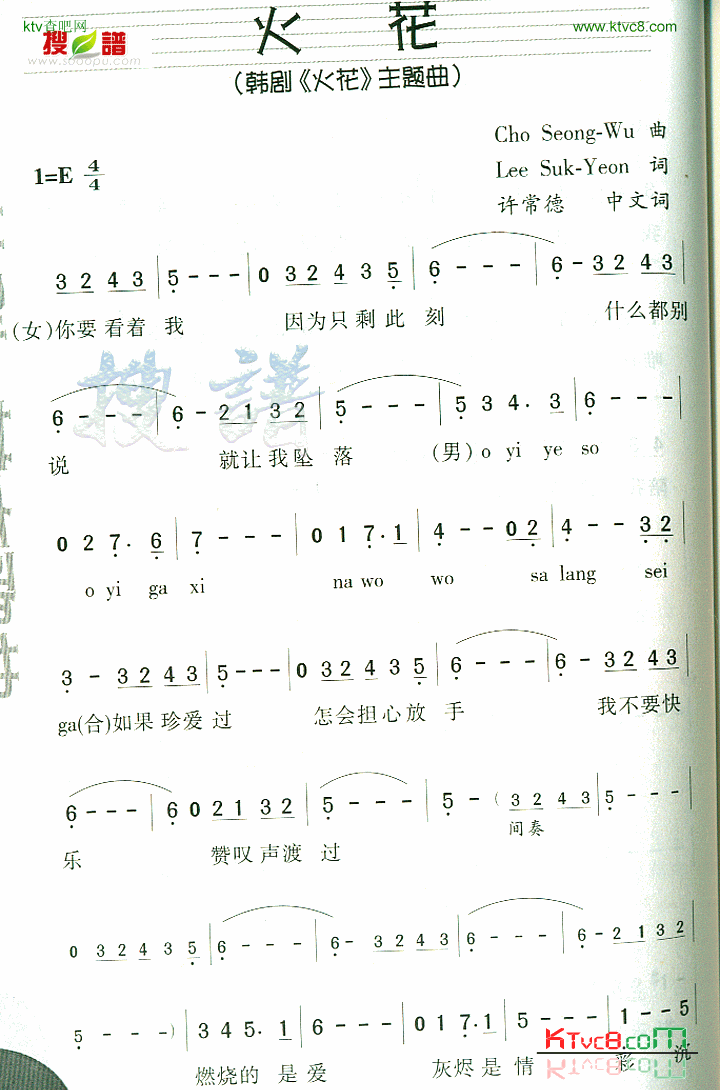 ktv查吧网
www.ktvc8.com
搜譜
www.sooopu.com
火 花
(韩剧《火花》主题曲)
Cho Seong-Wu 曲
1=E 4/4
Lee Suk-Yeon 词
许常德 中文词
3 2 4 3 | 5 - - - | 0 3 2 4 3 5 | 6 - - - | 6 - 3 2 4 3 |
(女)你要看着 我 因为只剩此 刻 什么都别
搜譜
6 - - - | 6 - 2 1 3 2 | 5 - - - | 5 3 4. 3 | 6 - - - |
说 就让我坠 落 (男)o yi ye so
0 2 7. 6 | 7 - - - | 0 1 7. 1 | 4 - - 0 2 | 4 - - 3 2 |
o yi ga xi na wo wo sa lang sei
3 - 3 2 4 3 | 5 - - - | 0 3 2 4 3 5 | 6 - - - | 6 - 3 2 4 3 |
ga(合)如果珍爱过 怎会担心放 手 我不要快
6 - - - | 6 0 2 1 3 2 | 5 - - - | 5 - ( 3 2 4 3 | 5 - - - |
间奏
乐 赞叹声渡 过
0 3 2 4 3 5 | 6 - - - | 6 - 3 2 4 3 | 6 - - - | 6 - 2 1 3 2 |
5 - - - ) | 3 4 5. 1 | 6 - - - | 0 1 7. 1 | 5 - - - | 1 - - 5
燃烧的 是 爱 灰烬是 情 彩 沉
KTvc8.com